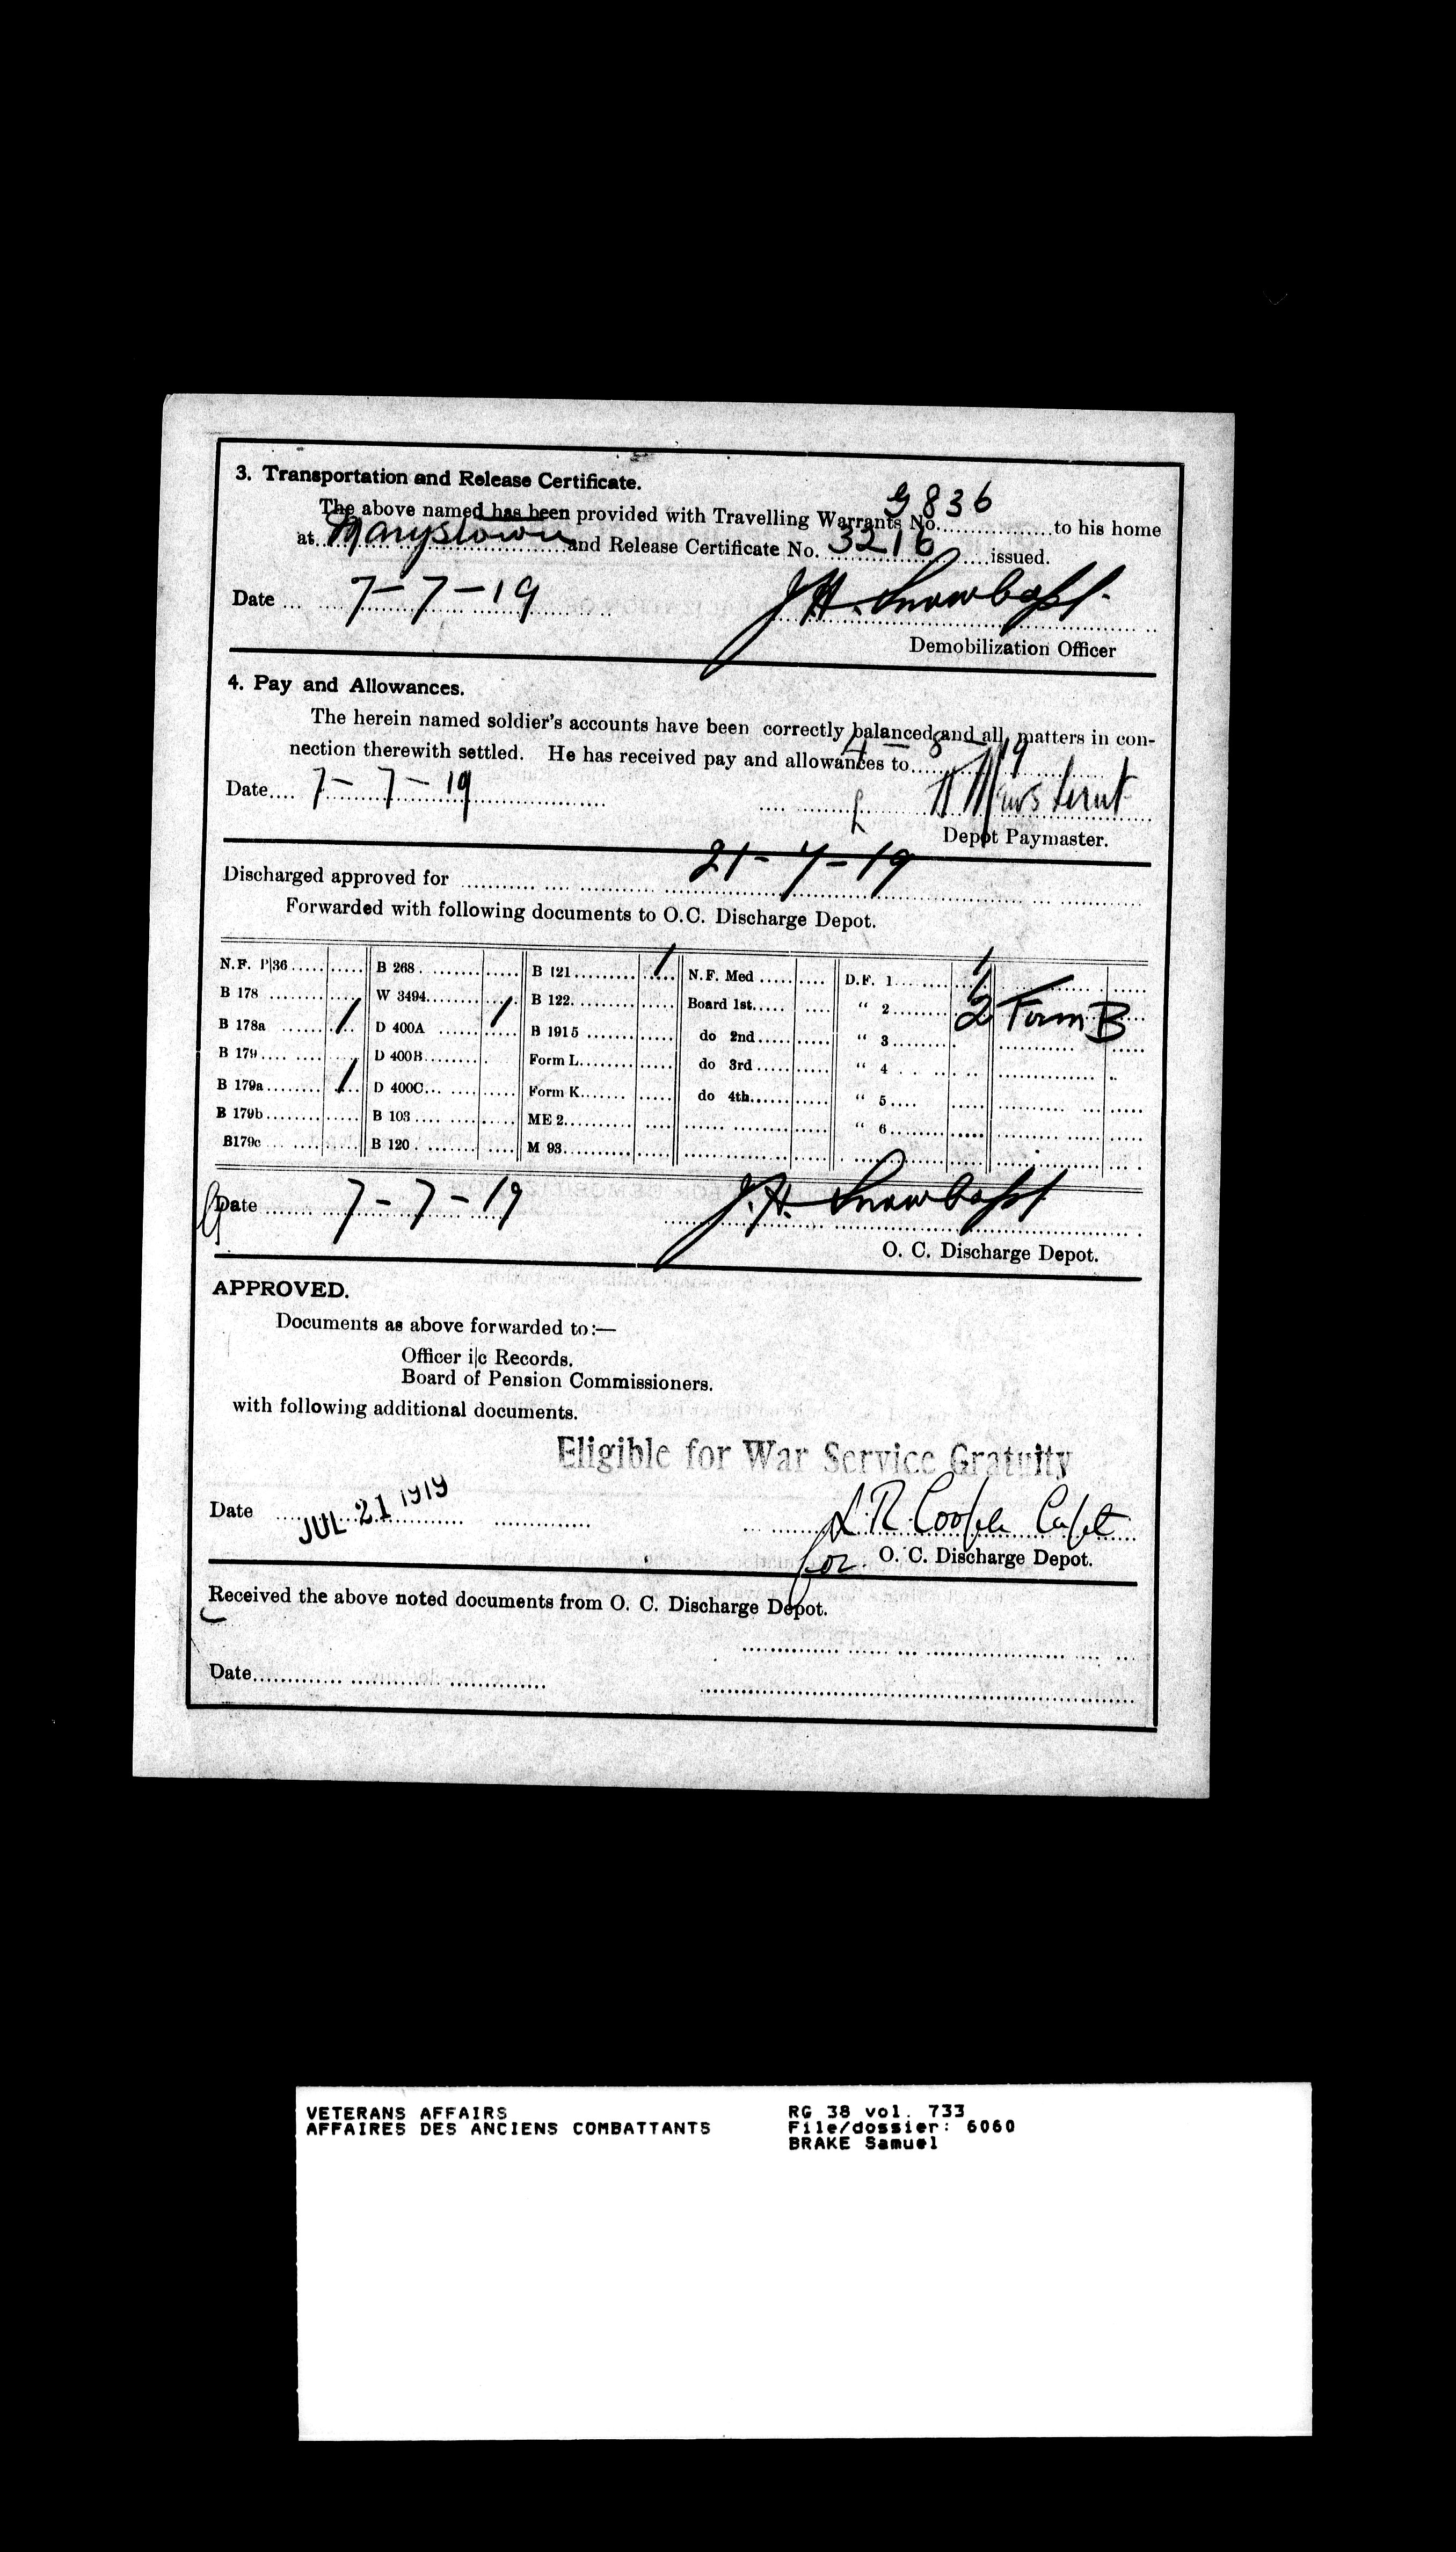 3. Transportation and Release Certificate.
The above named has been provided with Travelling Warrants No. G836 to his home
at Marystown and Release Certificate No. 3216 issued.
Date 7-7-19
Demobilization Officer
4. Pay and Allowances.
The herein named soldier's accounts have been correctly balanced and all matters in con-
nection therewith settled. He has received pay and allowances to 4-8-19
Date 7-7-19
Depot Paymaster.
Discharged approved for 21-7-19
Forwarded with following documents to O.C. Discharge Depot.
N.F. P|36 B 268 B 121 / N.F. Med D.F. 1 /
B 178 W 3494 B 122 Board 1st " 2 2 Form B
B 178a / D 400A / B 1915 do 2nd " 3
B 179 D 400B Form L do 3rd " 4
B 179a / D 400C Form K do 4th " 5
B 179b B 103 ME 2 " 6
B179c B 120 M 93
Date 7-7-19 J.H.
O. C. Discharge Depot.
APPROVED.
Documents as above forwarded to:—
Officer i|c Records.
Board of Pension Commissioners.
with following additional documents.
Eligible for War Service Gratuity
Date JUL 21 1919 L.R. Cooper Capt
for O. C. Discharge Depot.
Received the above noted documents from O. C. Discharge Depot.
Date
VETERANS AFFAIRS
AFFAIRES DES ANCIENS COMBATTANTS
RG 38 vol. 733
File/dossier: 6060
BRAKE Samuel